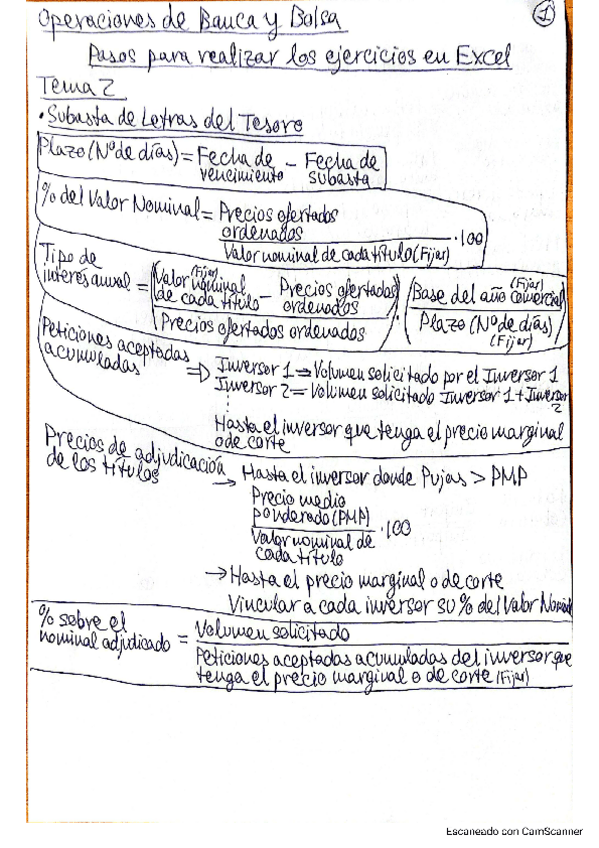 Operaciones de Banca y Bolsa
1
Pasos para realizar los ejercicios en Excel
Tema 2
• Subasta de Letras del Tesoro
Plazo (Nº de días) = Fecha de vencimiento - Fecha de subasta
% del Valor Nominal = Precios ofertados ordenados
Valor nominal de cada título (Fijar) · 100
Tipo de interés anual = (Valor nominal (Fijar) de cada título - Precios ofertados ordenados
Precios ofertados ordenados) · (Base del año comercial (Fijar)
Plazo (Nº de días) (Fijar))
Peticiones aceptadas acumuladas ⇒ Inversor 1 ⇒ Volumen solicitado por el Inversor 1
Inversor 2 = Volumen solicitado Inversor 1 + Inversor 2
⋮
Hasta el inversor que tenga el precio marginal
o de corte
Precios de adjudicación de los títulos → Hasta el inversor donde Pujas > PMP
Precio medio
ponderado (PMP)
Valor nominal de
cada título · 100
→ Hasta el precio marginal o de corte
Vincular a cada inversor su % del Valor Nominal
% sobre el nominal adjudicado = Volumen solicitado
Peticiones aceptadas acumuladas del inversor que
tenga el precio marginal o de corte (Fijar)
Escaneado con CamScanner